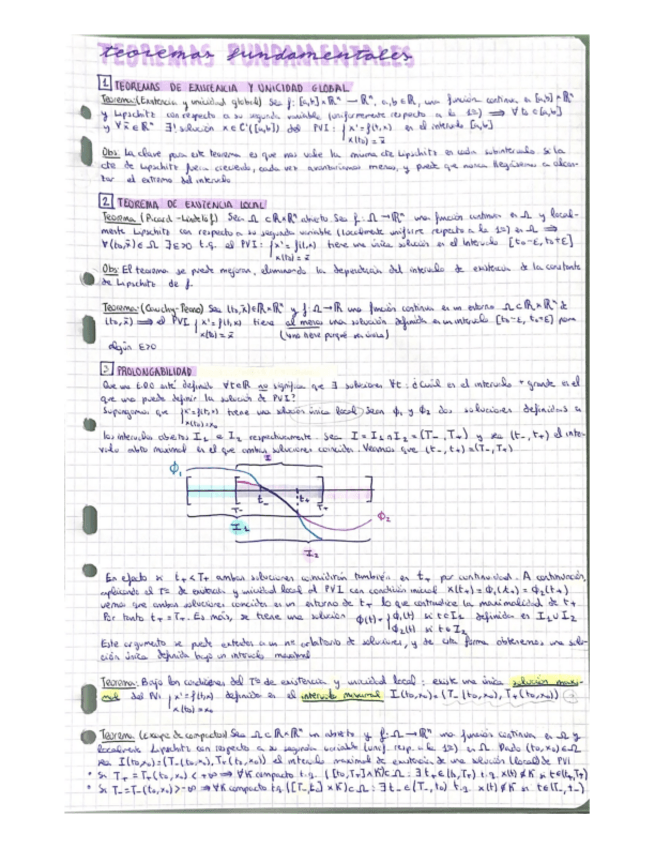 teoremas fundamentales
1 TEOREMAS DE EXISTENCIA Y UNICIDAD GLOBAL
Teorema: (Existencia y unicidad global) Sea f: [a,b]×ℝⁿ → ℝⁿ, a,b∈ℝ, una función continua en [a,b]×ℝⁿ
y Lipschitz con respecto a su segunda variable (uniformemente respecto a la 1ª) ⟹ ∀t₀∈[a,b]
y ∀x̄∈ℝⁿ ∃! solución x∈C¹([a,b]) del PVI: { x'=f(t,x) en el intervalo [a,b]
x(t₀)=x̄
Obs: La clave para este teorema es que nos vale la misma cte Lipschitz en cada subintervalo. Si la
cte de Lipschitz fuera creciendo, cada vez avanzaríamos menos, y puede que nunca llegásemos a alcan-
zar el extremo del intervalo
2 TEOREMA DE EXISTENCIA LOCAL
Teorema (Picard-Lindelöf) Sea Ω⊂ℝ×ℝⁿ abierto. Sea f: Ω→ℝⁿ una función continua en Ω y local-
mente Lipschitz con respecto a su segunda variable (localmente uniforme respecto a la 1ª) en Ω ⟹
∀(t₀,x̄)∈Ω ∃ε>0 t.q. el PVI: { x'=f(t,x) tiene una única solución en el intervalo [t₀-ε, t₀+ε]
x(t₀)=x̄
Obs: El teorema se puede mejorar, eliminando la dependencia del intervalo de existencia de la constante
de Lipschitz de f.
Teorema: (Cauchy-Peano) Sea (t₀,x̄)∈ℝ×ℝⁿ y f: Ω→ℝ una función continua en un entorno Ω⊂ℝ×ℝⁿ de
(t₀,x̄) ⟹ el PVI { x'=f(t,x) tiene al menos una solución definida en un intervalo [t₀-ε, t₀+ε] para
x(t₀)=x̄ (no tiene porqué ser única)
algún ε>0
3 PROLONGABILIDAD
Que una EDO esté definida ∀t∈ℝ no significa que ∃ soluciones ∀t: ¿Cuál es el intervalo + grande en el
que uno puede definir la solución de PVI?
Supongamos que { x'=f(t,x) tiene una solución única local. Sean ϕ₁ y ϕ₂ dos soluciones definidas en
x(t₀)=x₀
los intervalos abiertos I₁ e I₂ respectivamente. Sea I = I₁∩I₂ = (T₋,T₊) y sea (t₋,t₊) el inter-
valo abto maximal en el que ambas soluciones coinciden. Veamos que (t₋,t₊)=(T₋,T₊)
I
ϕ₁
t₋ t₊
T₋ T₊
ϕ₂
I₁
I₂
En efecto si t₊<T₊ ambas soluciones coincidirían también en t₊ por continuidad. A continuación,
aplicando el Tª de existencia y unicidad local al PVI con condición inicial x(t₊)=ϕ₁(t₊)=ϕ₂(t₊)
vemos que ambas soluciones coinciden en un entorno de t₊ lo que contradice la maximalidad de t₊
Por tanto t₊=T₊. Es más, se tiene una solución ϕ(t)={ ϕ₁(t) si t∈I₁ definida en I₁∪I₂
ϕ₂(t) si t∈I₂
Este argumento se puede extender a un nº arbitrario de soluciones, y de esta forma obtenemos una solu-
ción única definida bajo un intervalo maximal
Teorema: Bajo las condiciones del Tª de existencia y unicidad local: existe una única solución maxi-
mal del PVI { x'=f(t,x) definida en el intervalo maximal I(t₀,x₀)=(T₋(t₀,x₀), T₊(t₀,x₀))
x(t₀)=x₀
Teorema: (escape de compactos) Sea Ω⊂ℝ×ℝⁿ un abierto y f: Ω→ℝⁿ una función continua en Ω y
localmente Lipschitz con respecto a su segunda variable (unif. resp. a la 1ª) en Ω. Dado (t₀,x₀)∈Ω
sea I(t₀,x₀)=(T₋(t₀,x₀), T₊(t₀,x₀)) el intervalo maximal de existencia de una solución (local) de PVI
• Si T₊=T₊(t₀,x₀)<+∞ ⟹ ∀K compacto t.q. ([t₀,T₊]×K)⊂Ω : ∃t₊∈(t₀,T₊) t.q. x(t)∉K si t∈(t₊,T₊)
• Si T₋=T₋(t₀,x₀)>-∞ ⟹ ∀K compacto t.q. ([T₋,t₀]×K)⊂Ω : ∃t₋∈(T₋,t₀) t.q. x(t)∉K si t∈(T₋,t₋)